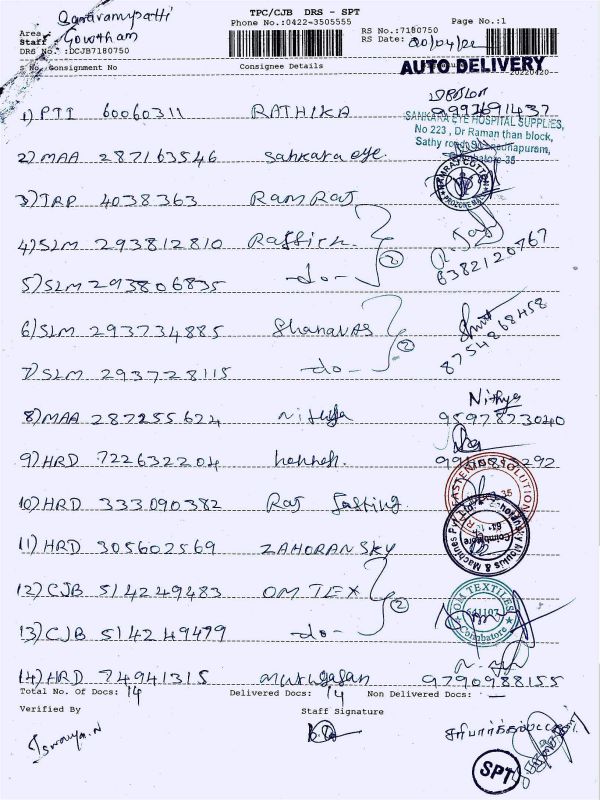 Saravanampatti
TPC/CJB DRS - SPT
Phone No.:0422-3505555
Page No.:1
Area
Staff : Gowtham
DRS No.:DCJB7180750
RS No.:7180750
RS Date: 20/04/22
S No. Consignment No
Consignee Details
AUTO DELIVERY
20220420
1) PTI 60060311 RATHIKA 9997691437
SANKARA EYE HOSPITAL SUPPLIES,
No 223 , Dr Raman than block,
2) MAA 287163546 Sankara eye.
3) TRP 4038363 Ram Raj
4) SLM 293812810 Raffick. 2
R. 6382120767
5) SLM 293806835 -do-
6) SLM 293734885 Shanavas 2
8754868458
7) SLM 293728115 -do-
Nithya
8) MAA 287255624 Nithya 9597873040
9) HRD 722632204 hannah.
10) HRD 333090382 Raj Fasting
11) HRD 305602569 ZAHORANSKY
12) CJB 514249483 OM TEX 2
OM TEXTILES
641107
Coimbatore
13) CJB 514249479 -do-
14) HRD 74941315 Murugasan 9790988155
Total No. Of Docs: 14 Delivered Docs: 14 Non Delivered Docs: —
Verified By
Staff Signature
SPT